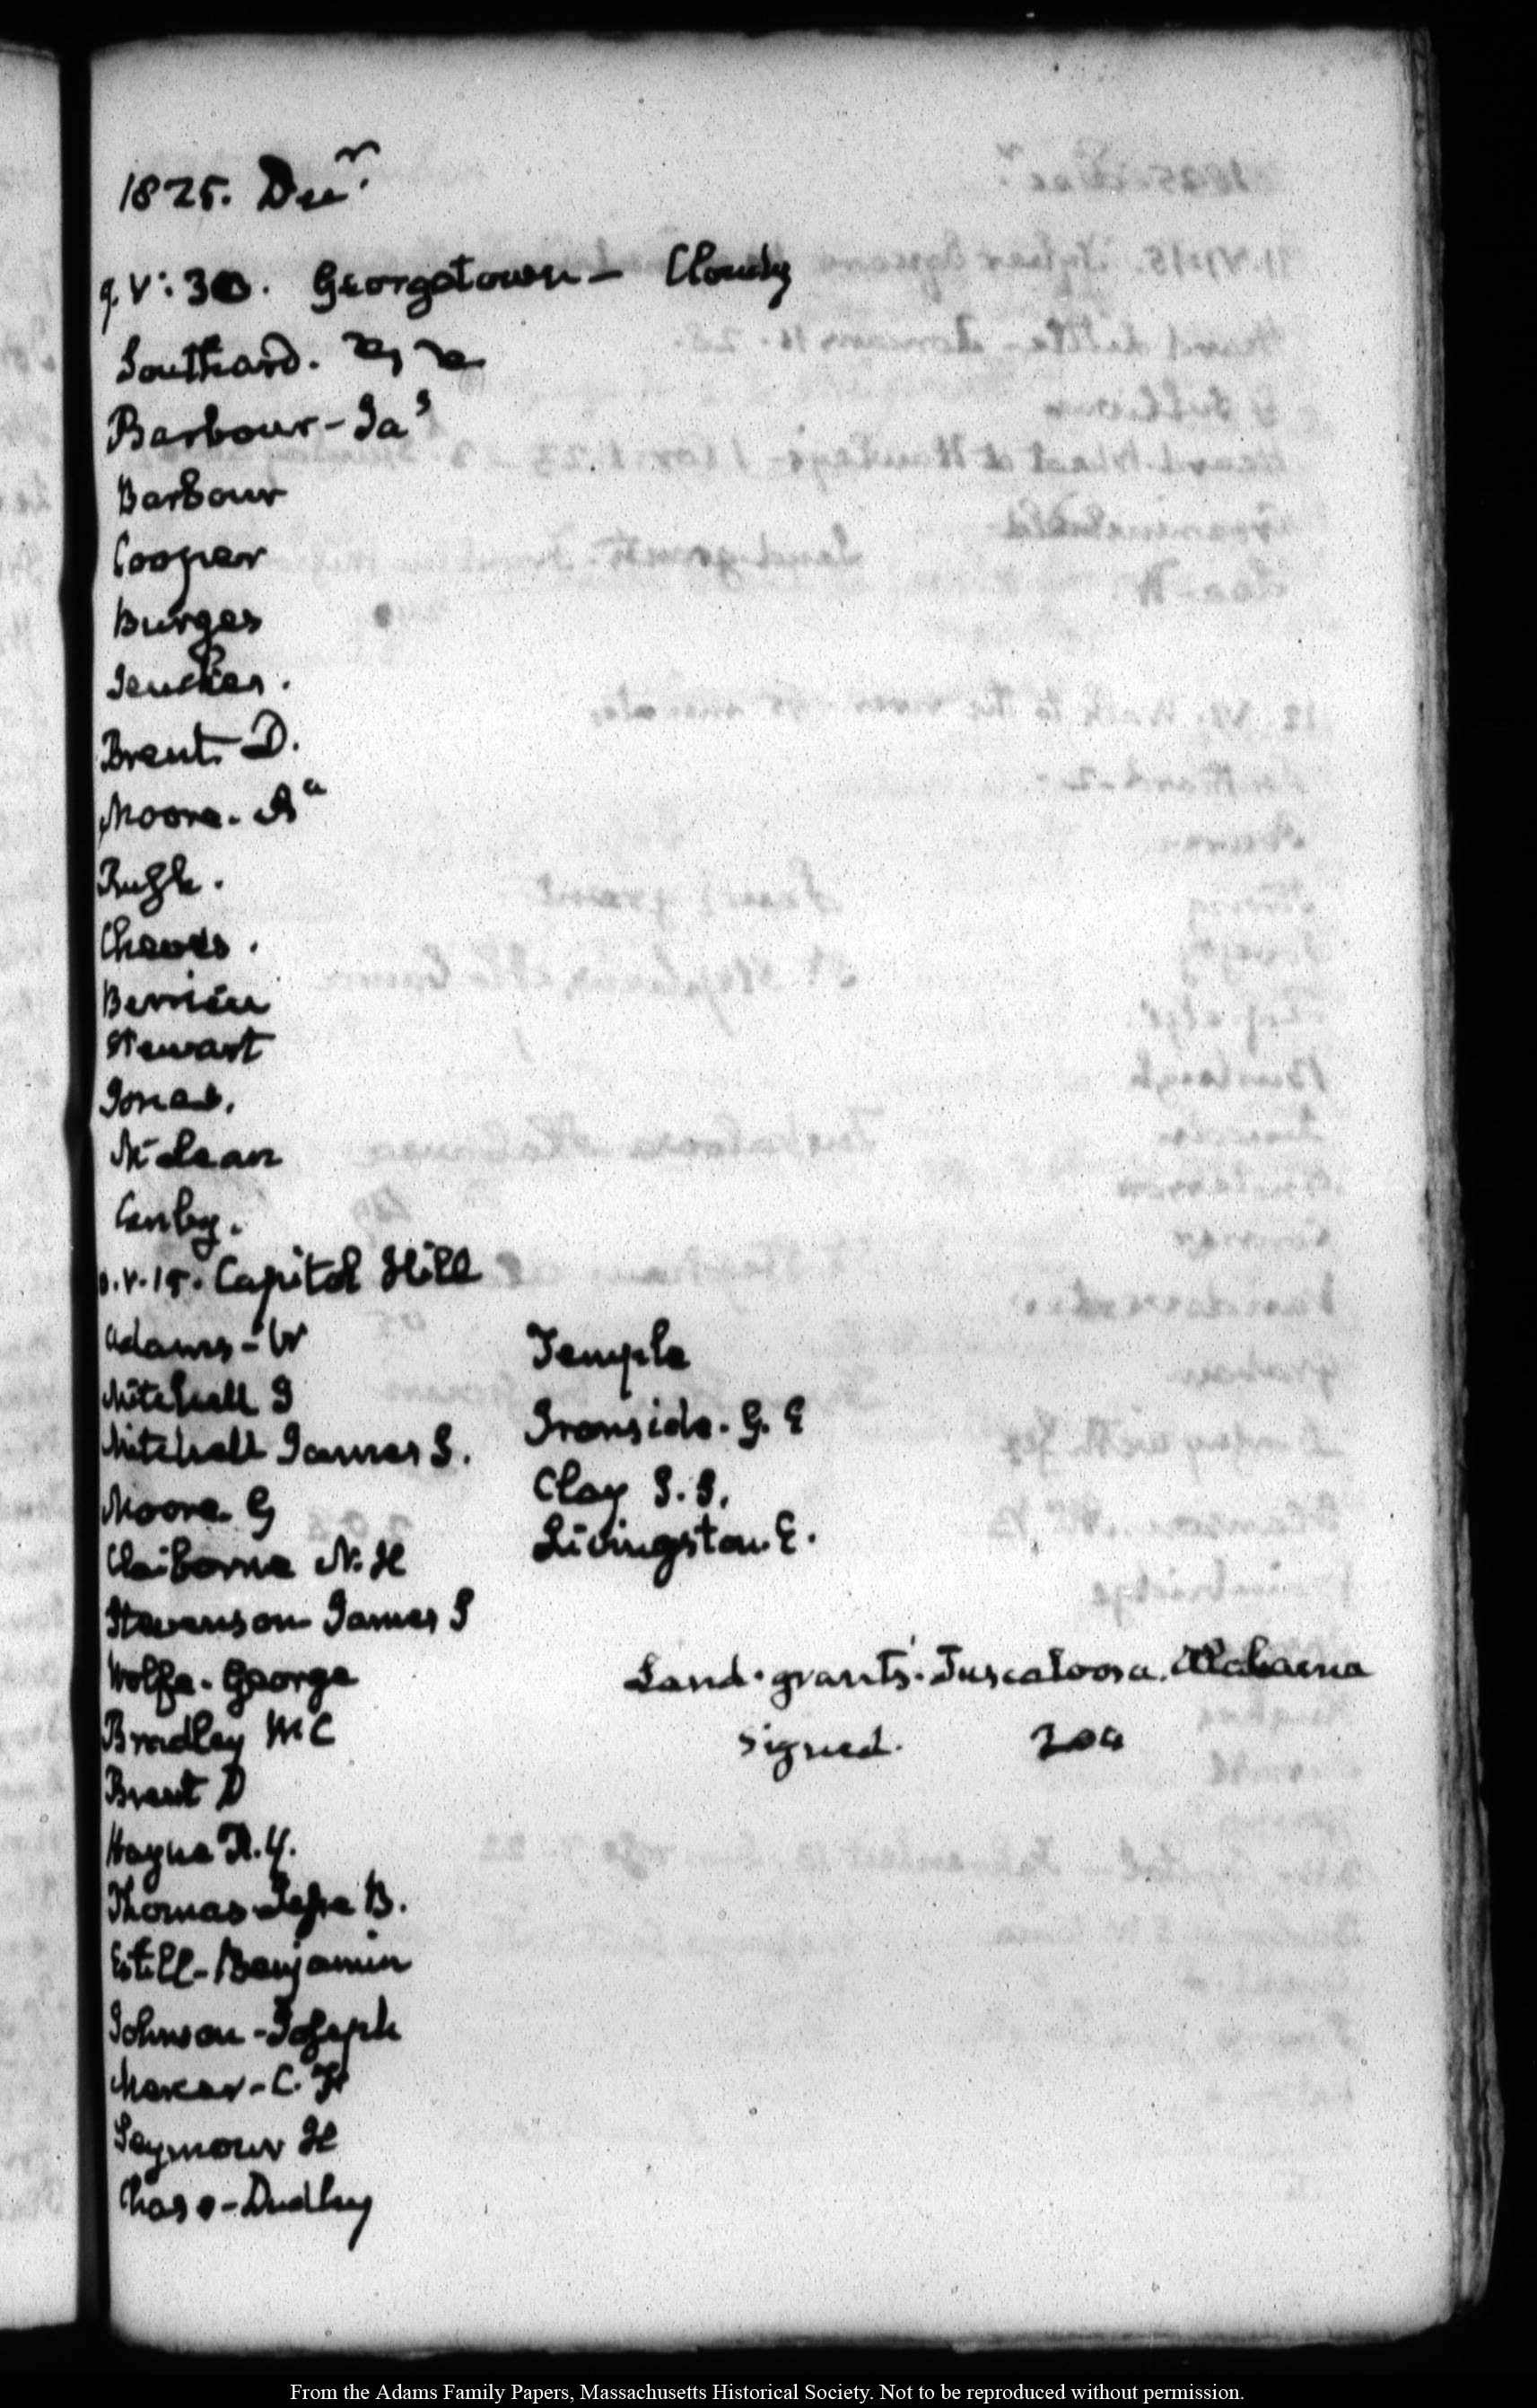 1825. Decr.
9. V: 30. Georgetown – Cloudy
Southard.
Barbour – Jas
Barbour
Cooper
Burges
Brent. D.
Moore. Aa
Cheves.
Berrien
Stewart
Jones.
McLean
Canby.
V. 15. Capitol Hill
Adams – W
Mitchell J
Mitchell James S.
Moore. G
Claiborne N. H
Stevenson James S
Wolfe. George
Bradley W C
Brent D
Hayne R. Y.
Thomas Jesse B.
Estill – Benjamin
Johnson – Joseph
Mercer – C. F
Seymour H
Chase – Dudley
Temple
Ironside. G. E
Clay J. J.
Livingston. E.
Land. grants. Tuscaloosa. Alabama
signed. 204
From the Adams Family Papers, Massachusetts Historical Society. Not to be reproduced without permission.